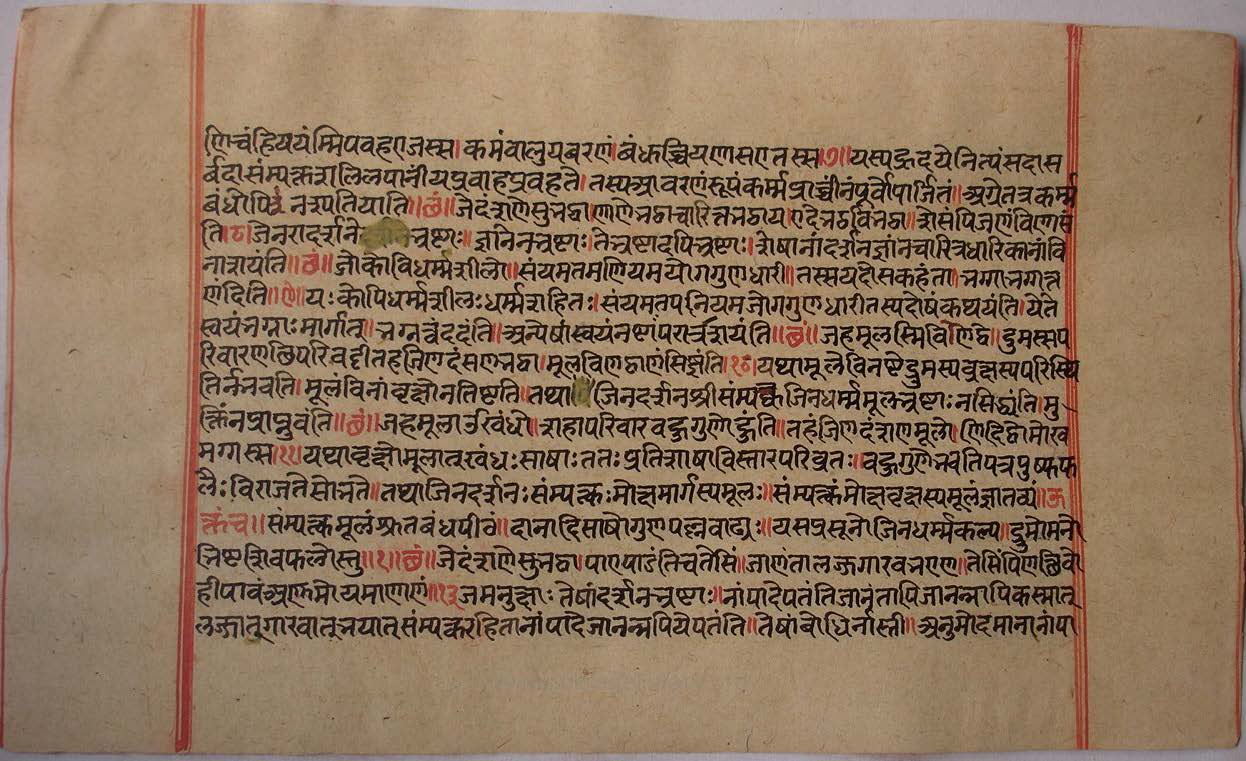 णिचंहियंम्मिपवहएजस्स। कमंवालुयबरणं बंधुच्चियणासएतस्स॥७॥ यस्यहृदयेनित्यंसदास
र्बदासंम्यक्त्वसलिलपानीयप्रवाहप्रवहते। तस्यआवरणंरूपंकर्म्मप्राचीनंपूर्वोपार्जितं॥अग्रेतत्रकर्म्म
बंधोपि नस्पतियाति॥छ॥ जेदंसणेसुभट्ठा।णाणेभट्ठाचारित्तभट्ठाय।एदेभट्ठविभट्ठा॥सेसंपिजणंविणासं
ति।८।जेनरादर्शने भ्रष्टाः॥ ज्ञानेनभ्रष्टाः।तेभ्रष्टादपिभ्रष्टाः।शेषानांदर्शनज्ञानचारित्रधारिकानांवि
नाशयंति॥छ॥ जोकोविधर्म्मशीलो॥संयमतमणियमयोगगुणधारी॥तस्सयदोसकहंता।भग्गाभग्गत्त
णंदिंति॥९॥यःकोपिधर्म्मशीलःधर्म्मसहितः।संयमतपनियमजोगगुणधारीतस्यदोषंकथयंति।येते
स्वयंभग्नाःमार्गात्॥भग्नत्वंददंति।अन्येषांस्वयंनष्टंपरांश्चनाशयंति॥छ॥ जहमूलम्मिविणिट्ठे॥दुमस्सप
रिवारणत्थिपरिवट्टीतहजिणदंसणभट्ठा।मूलविणट्ठाणसिझंति।१०।यथामूलेविनष्टेद्रुमस्यवृक्षस्यपरिस्थि
तिर्नभवति।मूलविनांवृक्षोनतिष्टति।तथा जिनदर्शनश्रीसंम्यक्त्वजिनधर्म्ममूलभ्रष्टाःनसिद्ध्यंति।मु
क्तिंनप्राप्नुवंति॥छ॥ जहमूलाउखंधो॥साहापरिवारबहुगुणोहुंति॥तहंजिणदंसणमूलो।णिदिट्ठोमोख
मग्गस्स।११।यथावृक्षोमूलात्खंधःसाषाःततःप्रतिशाषाविस्तारपरिव्रतः।बहुगुणैभवतिपत्रपुष्पफ
लैःविराजतेसोभते॥तथाजिनदर्शनःसंम्यक्त्वःमोक्षमार्गस्यमूलः॥संम्यक्त्वंमोक्षवृक्षस्यमूलंज्ञातव्यं॥उ
क्तंच॥संम्यक्त्वमूलंश्रुतबंधपीवं॥दानादिसाषोगुणपल्लवाढ्यः॥यसप्रसूनोजिनधर्म्मकल्प॥द्रुमोमनो
भिष्टशिवफलोस्तु॥१॥छ॥ जेदंसणेसुभट्ठा।पाएपाडंतिचतेसिं॥जाणंतालज्जगारवभएण॥तेसिंपिणत्थिवो
हीपावंअणुमोयमाणाणं॥१३॥जेमनुक्षाःतेषांदर्शनभ्रष्टाः॥नांपादेपतंतिजानंतापिजानन्नपिकस्मात्
लज्जात्गारवात्भयात्संम्यक्त्वरहितानांपादेजानन्नपियेपतंति॥तेषांबोधिर्नास्ती॥अनुमोदमानानांपा